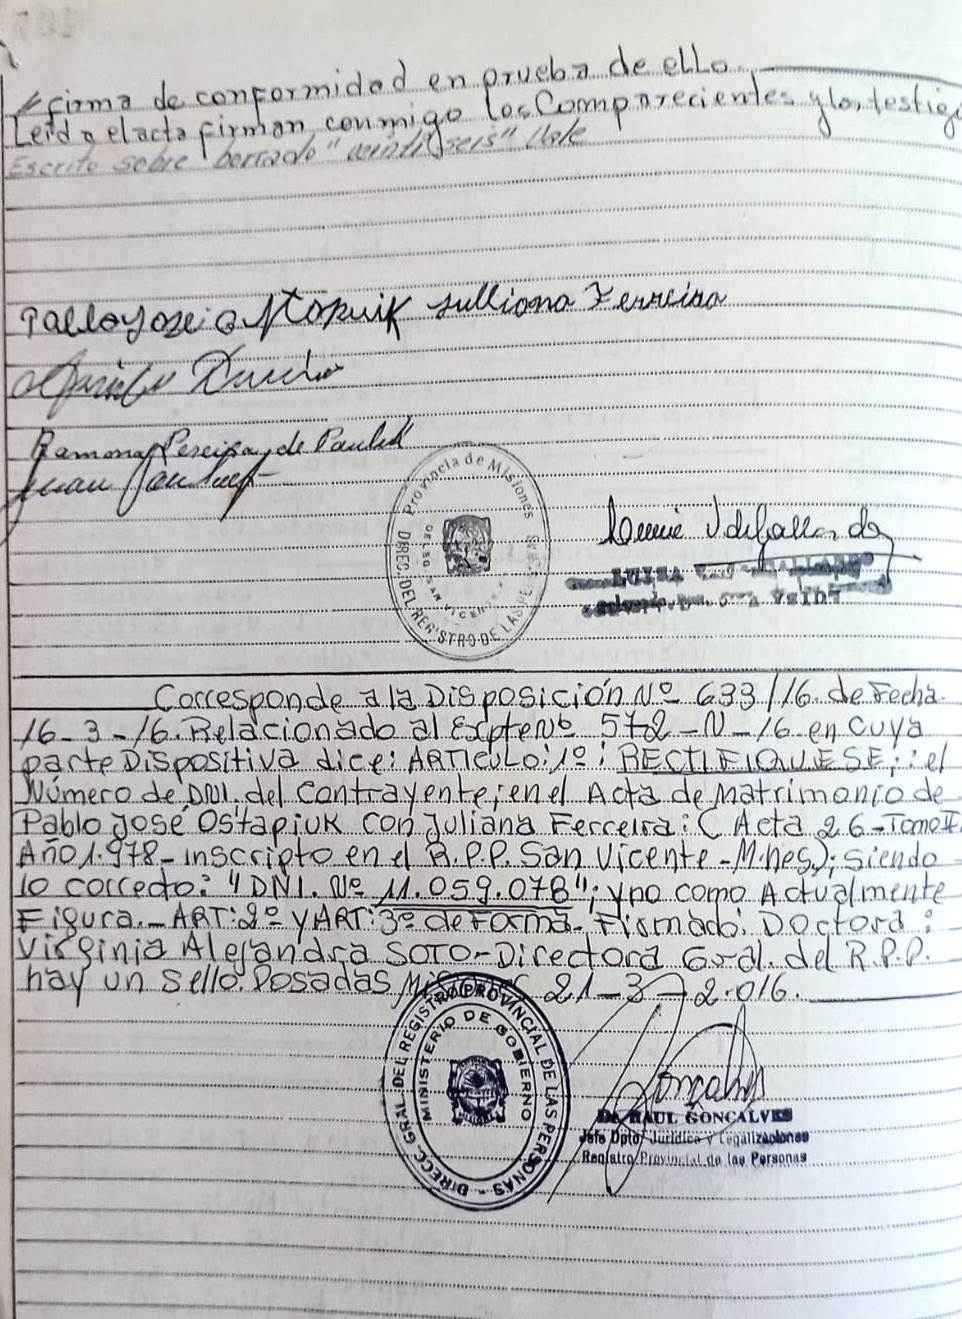 firma de conformidad en prueba de ello
Leida el acta firman conmigo los Comparecientes y los testig
Escrito sobre borrado "veintiseis" Vale
Pablo Jose Ostapiuk Julliana Ferreira
Ramona Pereira de Paulek
Juan
Provincia de Misiones
DIREC. DEL REGISTRO DE LAS PERSONAS
DELEG. SAN VICENTE
LUISA
Corresponde a la Disposición Nº 633/16. de Fecha
16-3-16. Relacionado al Expte Nº 572-N-16 en cuya
parte Dispositiva dice: ARTICULO: 1º: RECTIFIQUESE,: el
Número de DNI. del contrayente; en el Acta de Matrimonio de
Pablo José Ostapiuk con Juliana Ferreira: (Acta 26-Tomo II
Año 1.978-inscripto en el R.P.P. San Vicente-Mnes); siendo
lo correcto: "DNI. Nº 11.059.078"; y no como Actualmente
Figura.- ART: 2º y ART: 3º de Forma- Firmado: Doctora:
Virginia Alejandra SOTO-Directora Gral. del R.P.P.
hay un sello. Posadas, Misiones 21-3-2.016.
DIRECC. GRAL. DEL REGISTRO PROVINCIAL DE LAS PERSONAS
MINISTERIO DE GOBIERNO
Goncalves
Dr. RAUL GONCALVES
Jefe Dpto. Jurídica y Legalizaciones
Registro Provincial de las Personas